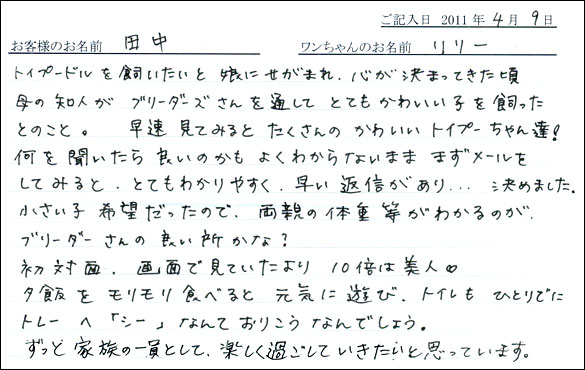 ご記入日 2011年4月9日
お客様のお名前 田中 ワンちゃんのお名前 リリー
トイプードルを飼いたいと娘にせがまれ、心が決まってきた頃
母の知人がブリーダーズさんを通してとてもかわいい子を飼った
とのこと。早速見てみるとたくさんのかわいいトイプーちゃん達!
何を聞いたら良いのかもよくわからないまままずメールを
してみると、とてもわかりやすく、早い返信があり... 決めました。
小さい子希望だったので、両親の体重等がわかるのが、
ブリーダーさんの良い所かな?
初対面、画面で見ていたより10倍は美人♡
夕飯をモリモリ食べると元気に遊び、トイレもひとりでに
トレーへ「シー」なんておりこうなんでしょう。
ずっと家族の一員として、楽しく過ごしていきたいと思っています。